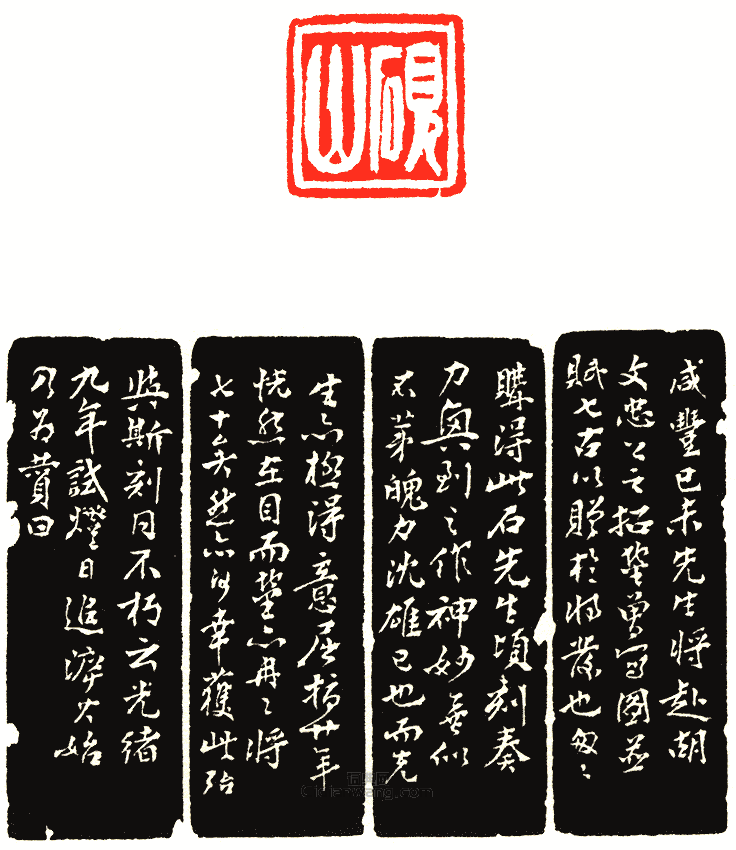 硯山
咸豐己未先生將赴胡
文忠公之招蟄曾寫圖並
賦七古以贈於將發也匆〻
購得此石先生頃刻奏
刀興到之作神妙無似
不第魄力沈雄已也而先
生亦極得意屈指廿年
恍然在目而蟄亦冉〻將
七十矣然亦何幸獲此殆
與斯刻同不朽云光緒
九年試燈日追濟